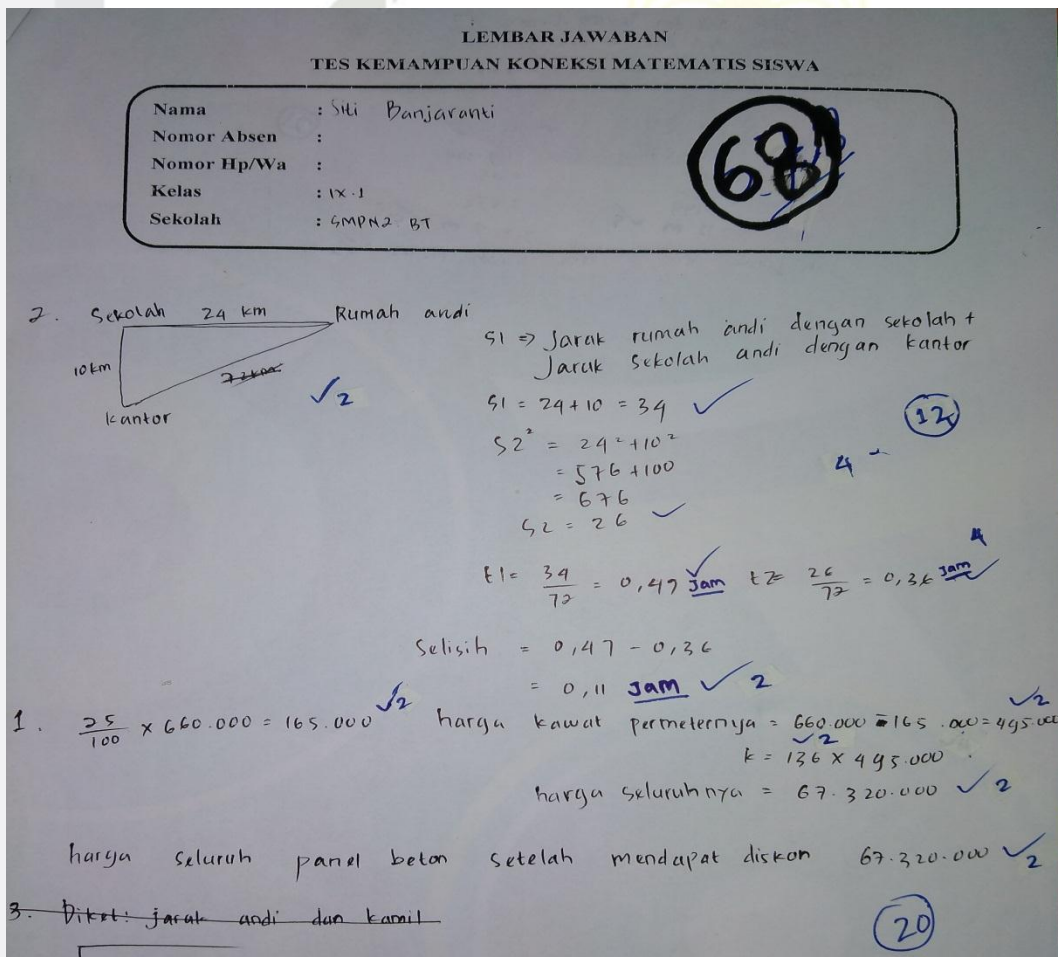 LEMBAR JAWABAN
TES KEMAMPUAN KONEKSI MATEMATIS SISWA
Nama : Siti Banjaranti
Nomor Absen :
Nomor Hp/Wa :
Kelas : IX.1
Sekolah : SMPN2 BT
68
2. Sekolah 24 km Rumah andi
10 km
kantor
√2
S1 => Jarak rumah andi dengan sekolah +
Jarak sekolah andi dengan kantor
S1 = 24 + 10 = 34 ✓
12
S2² = 24² + 10²
= 576 + 100
4
= 676
S2 = 26 ✓
4
t1 = 34/72 = 0,47 Jam ✓ t2 = 26/72 = 0,36 Jam ✓
Selisih = 0,47 - 0,36
= 0,11 Jam ✓ 2
1. 25/100 x 660.000 = 165.000 √2 harga kawat permeternya = 660.000 - 165.000 = 495.000 √2
√2
k = 136 x 495.000
harga seluruhnya = 67.320.000 ✓ 2
harga seluruh panel beton setelah mendapat diskon 67.320.000 √2
3. Diket: jarak andi dan kamil
20